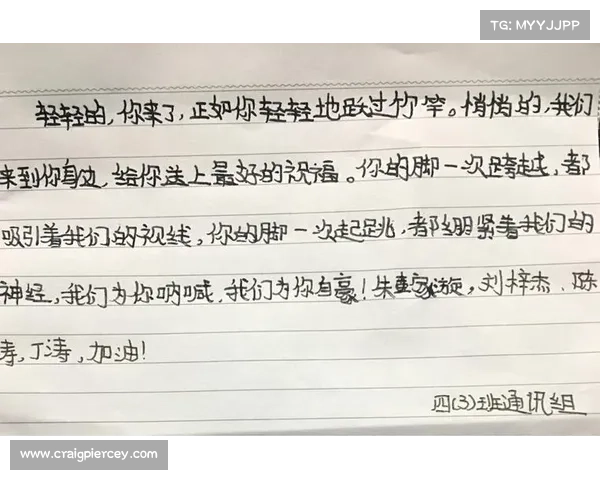 TG: MYYJJPP
轻轻的,你来了,正如你轻轻地跃过竹竿。悄悄的,我们
来到你身边,给你送上最好的祝福。你的脚一次跨越,都
吸引着我们的视线,你的脚一次起跳,都绷紧着我们的
神经,我们为你呐喊,我们为你自豪!朱,刘梓杰、陈
涛,丁涛,加油!
四(3)班通讯组
www.craigpiercey.com